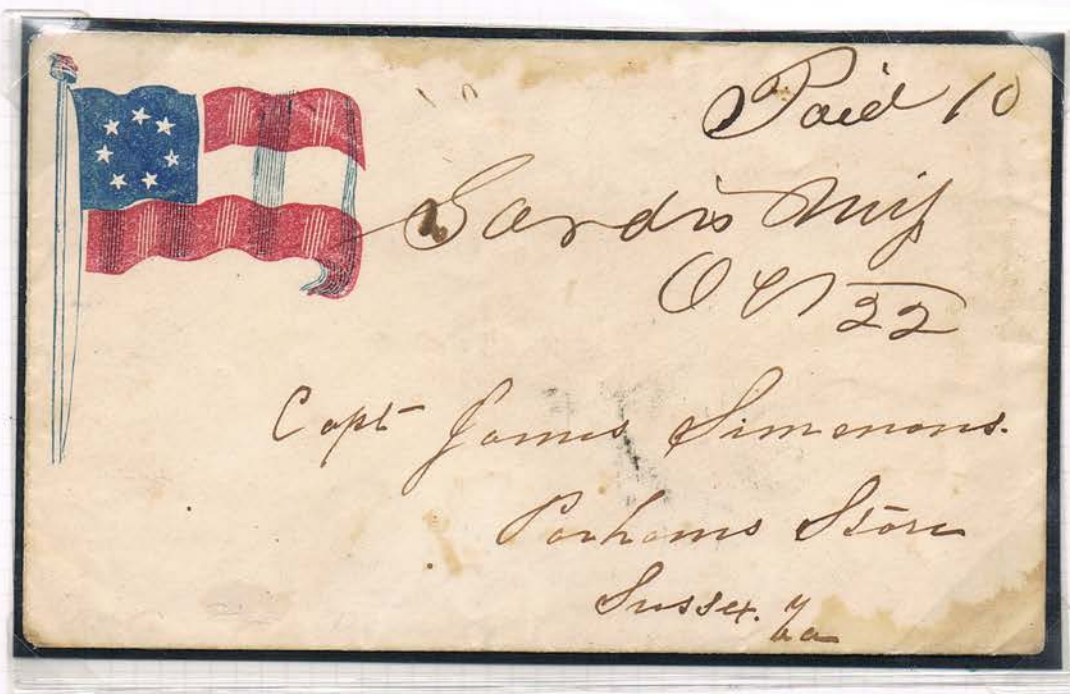 Paid 10
Sardis Miss
Oct 22
Capt James Simmons.
Parhams Store
Sussex. Va